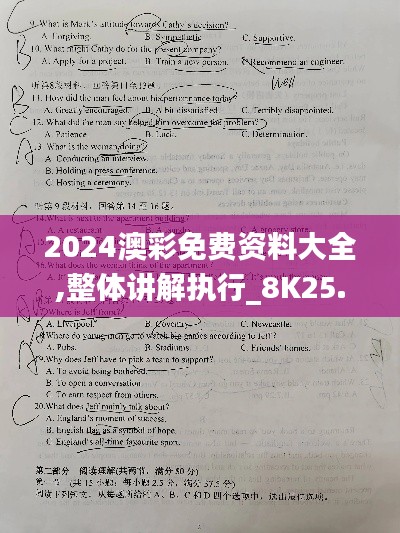 9. What is Mark's attitude towards Cathy's decision?
A. Forgiving. B. Sympathetic C. Supportive.
10. What might Cathy do for the present company?
A. Apply for a project. B. Train a new person. C. Recommend an engineer.
听第8段材料，回答第11至13题。
new
11. How did the man feel about his performance today?
A. Greatly encouraged B. A bit dissatisfied C. Terribly disappointed.
12. What did the man say helped him overcome the problem?
A. Patience B. Luck. C. Determination.
13 What is the woman doing?
A. Conducting an interview.
B. Holding a press conference.
C. Hosting a ceremony.
听第 9 段材料，回答第 14 至 16 题。
2024澳彩免费资料大全
,整体讲解执行_8K25.
A. Liverpool B. Coventry C. Newcastle.
Where do young men go to watch big games according to Jeff?
A. Pubs. B. Stadiums. C. Friends' homes.
19. Why does Jeff have to pick a team to support?
A. To avoid being bothered.
B. To open a conversation
C. To earn respect from others.
20. What does Jeff mainly talk about?
A. England's moment of success.
B. English flag as a symbol of hope.
C. England's all-time favourite sport.
第二部分 阅读理解(共两节，满分 50 分)
第一节 (共 15 小题；每小题 2.5 分，满分 37.5 分)
阅读下列短文，从每题所给的 A、B、C 和 D 四个选项中，选出最佳选项。